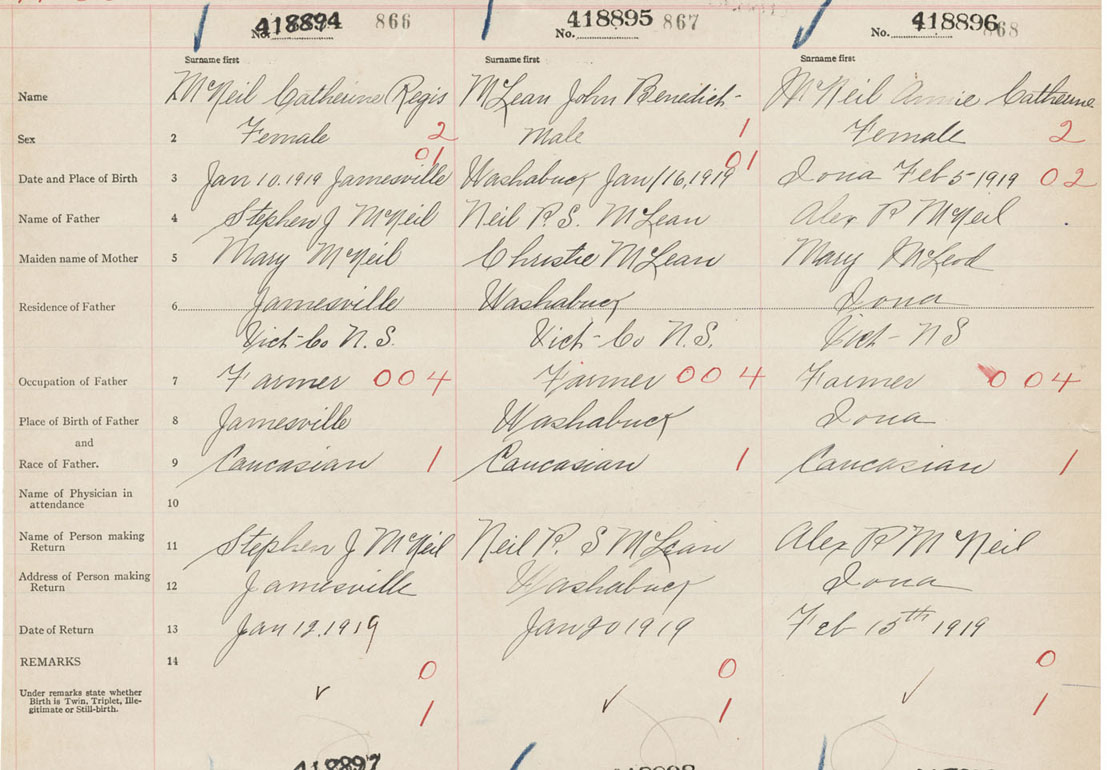 418894 866 418895 867 418896 868
No. No. No.
Surname first Surname first Surname first
Name McNeil Catherine Regis McLean John Benedict McNeil Annie Catherine
Sex 2 Female 2 Male 1 Female 2
01 01
Date and Place of Birth 3 Jan 10. 1919 Jamesville Washabuck Jan/16, 1919 Iona Feb 5 1919 02
Name of Father 4 Stephen J McNeil Neil P. S. McLean Alex P McNeil
Maiden name of Mother 5 Mary McNeil Christie McLean Mary McLeod
Residence of Father 6 Jamesville Washabuck Iona
Vict-Co N.S. Vict-Co N.S. Vict-NS
Occupation of Father 7 Farmer 004 Farmer 004 Farmer 004
Place of Birth of Father 8 Jamesville Washabuck Iona
and
Race of Father. 9 Caucasian 1 Caucasian 1 Caucasian 1
Name of Physician in
attendance 10
Name of Person making
Return 11 Stephen J McNeil Neil P. S McLean Alex P McNeil
Address of Person making
Return 12 Jamesville Washabuck Iona
Date of Return 13 Jan 12. 1919 Jan 20 1919 Feb 15th 1919
REMARKS 14 0 0 0
Under remarks state whether
Birth is Twin, Triplet, Ille-
gitimate or Still-birth. 1 1 1
418897